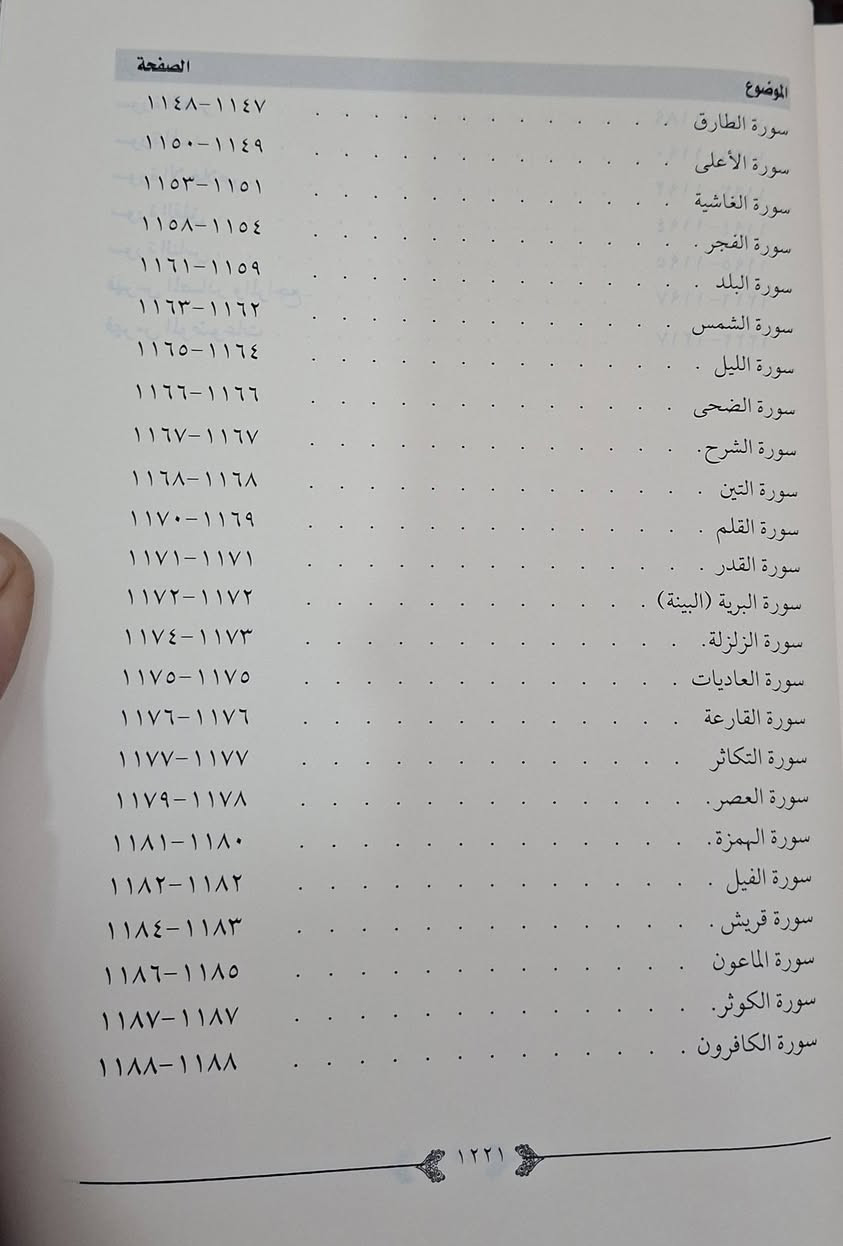 الموضوع الصفحة
سورة الطارق ١١٤٧-١١٤٨
سورة الأعلى ١١٤٩-١١٥٠
سورة الغاشية ١١٥١-١١٥٣
سورة الفجر ١١٥٤-١١٥٨
سورة البلد ١١٥٩-١١٦١
سورة الشمس ١١٦٢-١١٦٣
سورة الليل ١١٦٤-١١٦٥
سورة الضحى ١١٦٦-١١٦٦
سورة الشرح ١١٦٧-١١٦٧
سورة التين ١١٦٨-١١٦٨
سورة القلم ١١٦٩-١١٧٠
سورة القدر ١١٧١-١١٧١
سورة البرية (البينة) ١١٧٢-١١٧٢
سورة الزلزلة ١١٧٣-١١٧٤
سورة العاديات ١١٧٥-١١٧٥
سورة القارعة ١١٧٦-١١٧٦
سورة التكاثر ١١٧٧-١١٧٧
سورة العصر ١١٧٨-١١٧٩
سورة الهمزة ١١٨٠-١١٨١
سورة الفيل ١١٨٢-١١٨٢
سورة قريش ١١٨٣-١١٨٤
سورة الماعون ١١٨٥-١١٨٦
سورة الكوثر ١١٨٧-١١٨٧
سورة الكافرون ١١٨٨-١١٨٨
١٢٢١